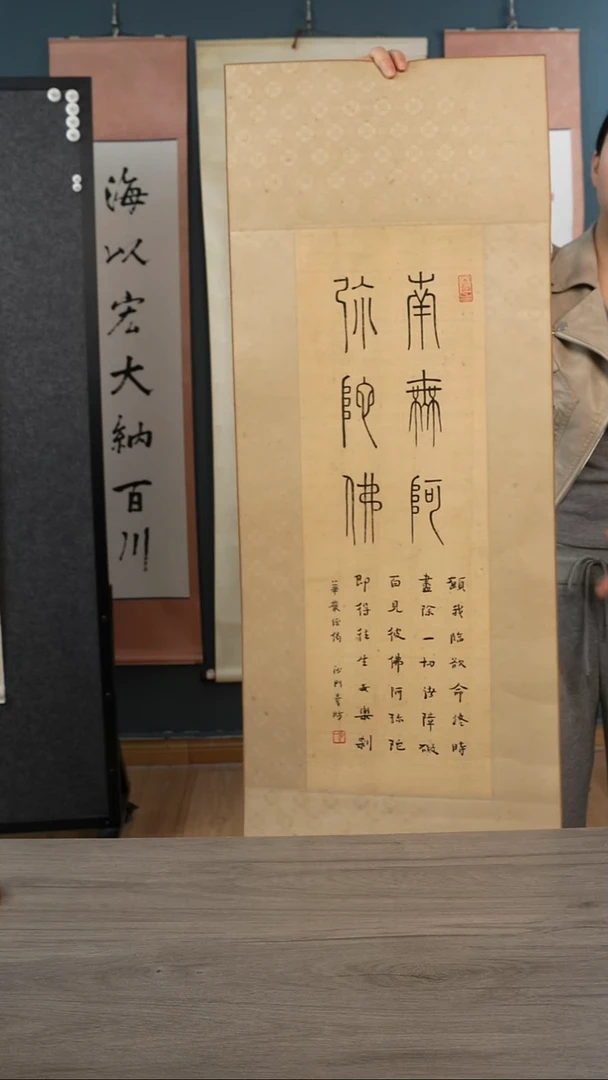 南無阿
弥陀佛
願我臨欲命終時
盡除一切諸障礙
面見彼佛阿弥陀
即得往生安樂刹
華嚴經偈 沙門曇昉
海以宏大納百川